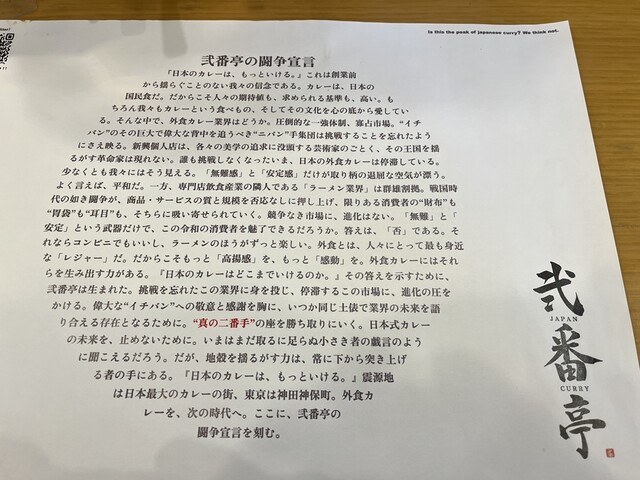 Is this the peak of japanese curry? We think not.
弐番亭の闘争宣言
『日本のカレーは、もっといける。』これは創業前
から揺らぐことのない我々の信念である。カレーは、日本の
国民食だ。だからこそ人々の期待値も、求められる基準も、高い。も
ちろん我々もカレーという食べもの、そしてその文化を心の底から愛してい
る。そんな中で、外食カレー業界はどうか。圧倒的な一強体制、寡占市場。“イチ
バン”のその巨大で偉大な背中を追うべき“ニバン”手集団は挑戦することを忘れたよう
にさえ映る。新興個人店は、各々の美学の追求に没頭する芸術家のごとく、その王国を揺
るがす革命家は現れない。誰も挑戦しなくなったいま、日本の外食カレーは停滞している。
少なくとも我々にはそう見える。「無難感」と「安定感」だけが取り柄の退屈な空気が漂う。
よく言えば、平和だ。一方、専門店飲食産業の隣人である「ラーメン業界」は群雄割拠。戦国時
代の如き闘争が、商品・サービスの質と規模を否応なしに押し上げ、限りある消費者の“財布”も
“胃袋”も“耳目”も、そちらに吸い寄せられていく。競争なき市場に、進化はない。「無難」と「
安定」という武器だけで、この令和の消費者を魅了できるだろうか。答えは、「否」である。そ
れならコンビニでもいいし、ラーメンのほうがずっと楽しい。外食とは、人々にとって最も身近
な「レジャー」だ。だからこそもっと「高揚感」を、もっと「感動」を。外食カレーにはそれ
らを生み出す力がある。『日本のカレーはどこまでいけるのか。』その答えを示すために、
弐番亭は生まれた。挑戦を忘れたこの業界に身を投じ、停滞するこの市場に、進化の圧を
かける。偉大な“イチバン”への敬意と感謝を胸に、いつか同じ土俵で業界の未来を語
り合える存在となるために。“真の二番手”の座を勝ち取りにいく。日本式カレー
の未来を、止めないために。いまはまだ取るに足らぬ小さき者の戯言のよう
に聞こえるだろう。だが、地殻を揺るがす力は、常に下から突き上げ
る者の手にある。『日本のカレーは、もっといける。』震源地
は日本最大のカレーの街、東京は神田神保町。外食カ
レーを、次の時代へ。ここに、弐番亭の
闘争宣言を刻む。
弐番亭
JAPAN
CURRY